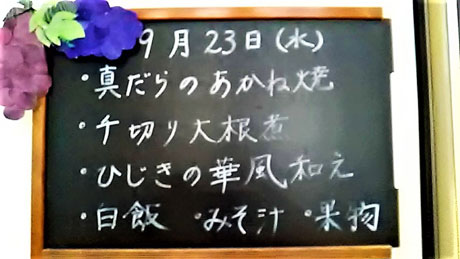 9月23日(水)
・真だらのあかね焼
・千切り大根煮
・ひじきの華風和え
・白飯 ・みそ汁 ・果物